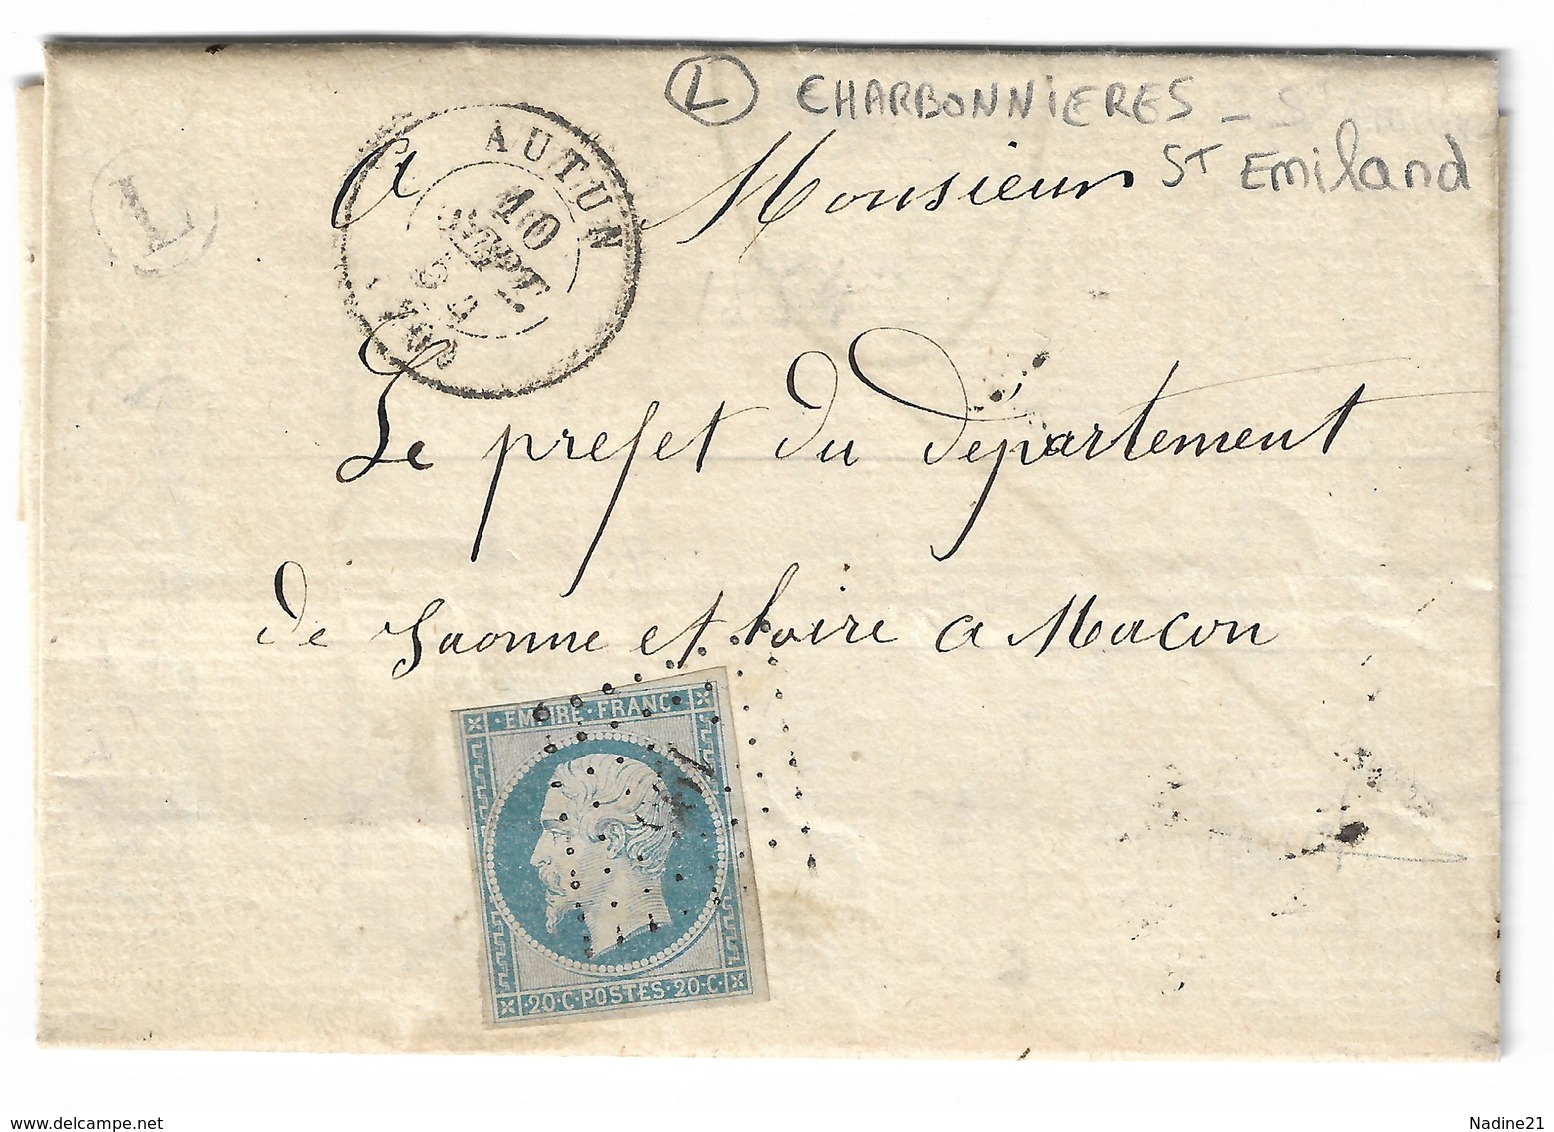 L CHARBONNIERES -
ST Emiland
L
AUTUN
10
SEPT.
A Monsieur
Le prefet du département
de Saonne et Loire a Macon
EMPIRE · FRANC ·
· 20 · C · POSTES · 20 · C ·
delcampe.net
Nadine21